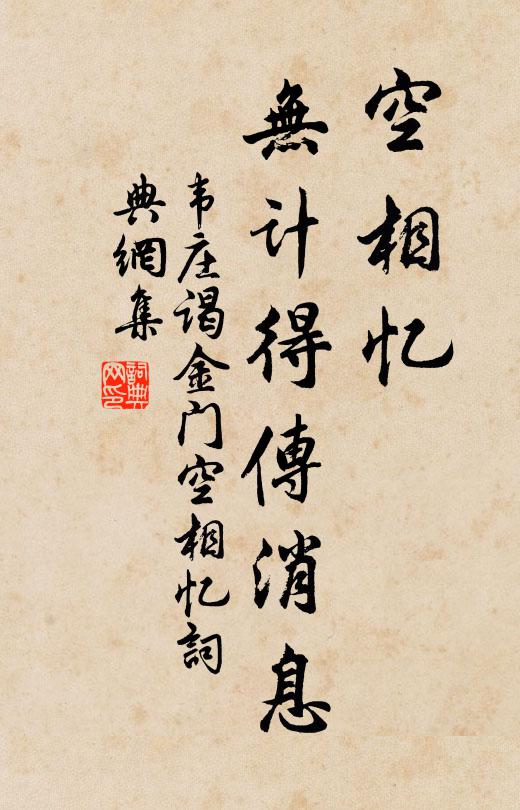 空相忆
無计得傳消息
韦庄谒金门空相忆詞
典網集
詞典网印